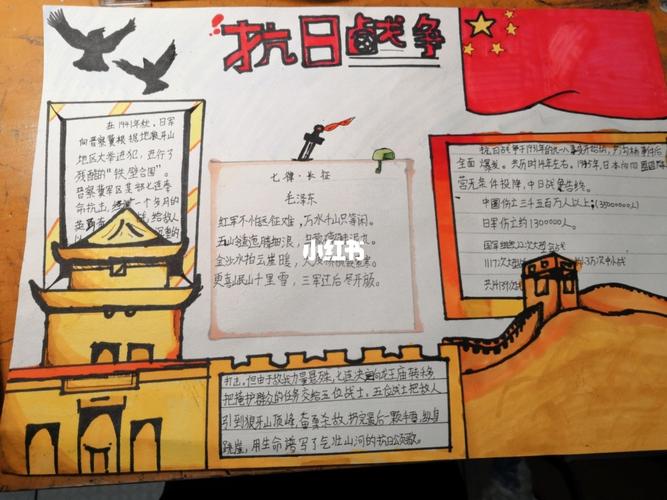 抗日战争
在1941年秋,日军
向晋察冀根据地狼牙山
地区大举进犯,进行了
残酷的“铁壁合围”。
晋察冀军区某部七连奉
命抗击,经过一个多月的
英勇奋战,给敌人
七律·长征
毛泽东
红军不怕远征难,万水千山只等闲。
五岭逶迤腾细浪,
金沙水拍云崖暖,大渡桥横铁索寒。
更喜岷山千里雪,三军过后尽开颜。
小红书
抗日战争于1931年的九一八事变开始,卢沟桥事件后
全面爆发。共历时14年左右。1945年,日本向同盟国
无条件投降,中日战争告终。
中国伤亡三千五百万人以上;(35000000人)
日军伤亡约1300000人。
国军 22次大型会战
1117次大型 小战
共计39次
打击,但由于敌我力量悬殊,七连决定向龙王庙转移
把掩护群众的任务交给五位战士,五位战士把敌人
引到狼牙山顶峰,奋勇杀敌,打完最后一颗子弹,纵身
跳崖,用生命谱写了气壮山河的抗日颂歌。